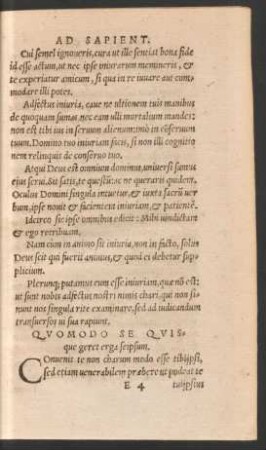 AD SAPIENT.
Cui semel ignoueris, cura ut ille sentiat bona fide
id esse actum, ut nec ipse iniuriarum memineris, &
te experiatur amicum, si qua in re iuuare aut com-
modare illi potes.
Adfectus iniuria, caue ne ultionem tuis manibus
de quoquam sumas, nec eam ulli mortalium mandes:
non est tibi ius in seruum alienum, imò in cōseruum
tuum. Domino tuo iniuriam facis, si non illi cognitio
nem relinquis de conseruo tuo.
Atqui Deus est omnium dominus, uniuersi sumus
eius serui. Sit satis, te questū: ac ne queraris quidem.
Oculus Domini singula intuetur, & iuxta sacrū uer
bum, ipse nouit & facientem iniuriam, & patientē.
Idcirco sic ipse omnibus edicit: Mihi uindictam
& ego retribuam.
Nam cùm in animo sit iniuria, non in facto, solus
Deus scit qui fuerit animus, & quod ei debetur sup-
plicium.
Plerunq; putamus eum esse iniuriam, quæ nō est:
ut sunt nobis adfectus nostri nimis chari, qui non si-
nunt nos singula ritè examinare, sed ad iudicandum
transuersos in sua rapiunt.
QVOMODO SE QVIS-
que geret erga seipsum.
Conuenit te non charum modo esse tibijpsi,
sed etiam uenerabilem præbere, ut pudeat te
E 4 tuijpsius